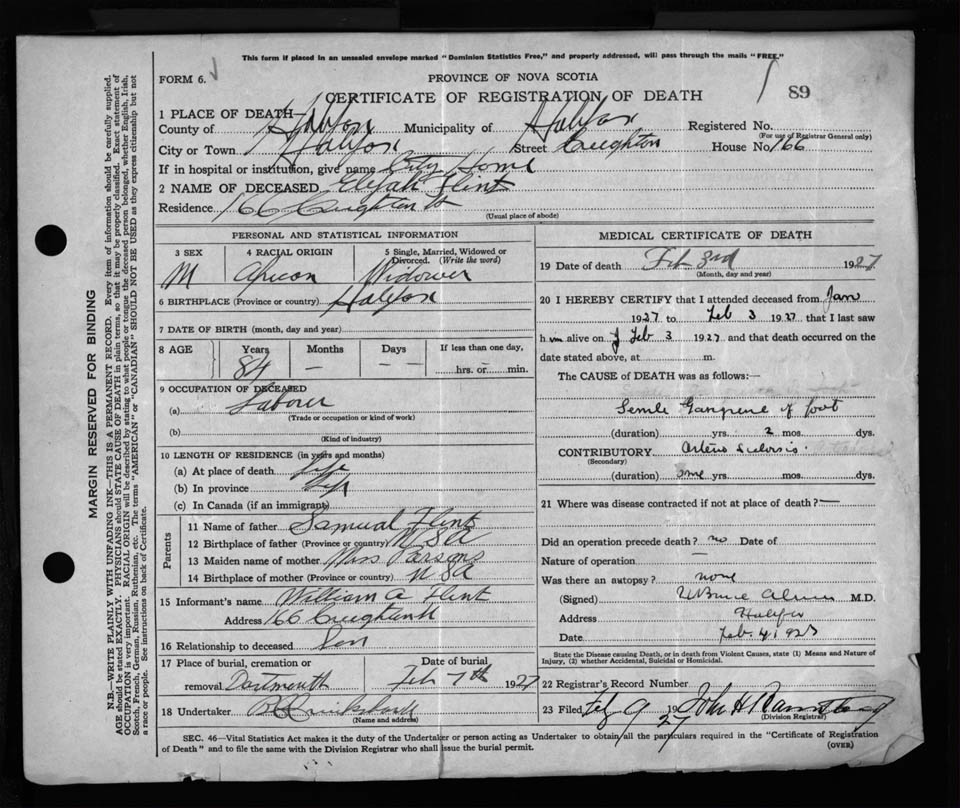 This form if placed in an unsealed envelope marked "Dominion Statistics Free," and properly addressed, will pass through the mails "FREE."
FORM 6.
PROVINCE OF NOVA SCOTIA
CERTIFICATE OF REGISTRATION OF DEATH
89
1 PLACE OF DEATH
County of Halifax Municipality of Halifax Registered No.
(For use of Registrar General only)
City or Town Halifax Street Creighton House No. 166
If in hospital or institution, give name City Home
2 NAME OF DECEASED Elijah Flint
Residence 166 Creighton St
(Usual place of abode)
PERSONAL AND STATISTICAL INFORMATION
3 SEX 4 RACIAL ORIGIN 5 Single, Married, Widowed or Divorced. (Write the word)
M African Widower
6 BIRTHPLACE (Province or country) Halifax
7 DATE OF BIRTH (month, day and year)
8 AGE Years Months Days If less than one day,
84 — — hrs. or min.
9 OCCUPATION OF DECEASED
(a) Laborer
(Trade or occupation or kind of work)
(b)
(Kind of industry)
10 LENGTH OF RESIDENCE (in years and months)
(a) At place of death life
(b) In province life
(c) In Canada (if an immigrant)
Parents
11 Name of father Samuel Flint
12 Birthplace of father (Province or country)
13 Maiden name of mother Miss Parsons
14 Birthplace of mother (Province or country)
15 Informant's name William A Flint
Address 166 Creighton St
16 Relationship to deceased Son
17 Place of burial, cremation or removal Dartmouth
Date of burial Feb 7th 1927
18 Undertaker
(Name and address)
MEDICAL CERTIFICATE OF DEATH
19 Date of death Feb 3rd 1927
(Month, day and year)
20 I HEREBY CERTIFY that I attended deceased from Jan
1927 to Feb 3 1927 that I last saw
him alive on Feb 3 1927 and that death occurred on the
date stated above, at m.
The CAUSE of DEATH was as follows:—
Senile Gangrene of foot
(duration) yrs. 2 mos. dys.
CONTRIBUTORY Arterio Sclerosis.
(Secondary)
(duration) some yrs. mos. dys.
21 Where was disease contracted if not at place of death? —
Did an operation precede death? no Date of
Nature of operation —
Was there an autopsy? none
(Signed) M.D.
Address Halifax
Date Feb. 4,
State the Disease causing Death, or in death from Violent Causes, state (1) Means and Nature of Injury, (2) whether Accidental, Suicidal or Homicidal.
22 Registrar's Record Number
23 Filed Feb 9 1927 John H
(Division Registrar)
SEC. 46—Vital Statistics Act makes it the duty of the Undertaker or person acting as Undertaker to obtain all the particulars required in the "Certificate of Registration
of Death" and to file the same with the Division Registrar who shall issue the burial permit.
(OVER)
MARGIN RESERVED FOR BINDING
N.B.—WRITE PLAINLY WITH UNFADING INK—THIS IS A PERMANENT RECORD. Every item of information should be carefully supplied.
AGE should be stated EXACTLY. PHYSICIANS should STATE CAUSE OF DEATH in plain terms, so that it may be properly classified. Exact statement of
OCCUPATION is very important. RACIAL ORIGIN will be described by stating to what people or tongue the deceased person belonged, whether English, Irish,
Scotch, French, German, Russian, Ruthenian, etc. The terms "AMERICAN" or "CANADIAN" SHOULD NOT BE USED as they express citizenship but not
a race or people. See instructions on back of Certificate.